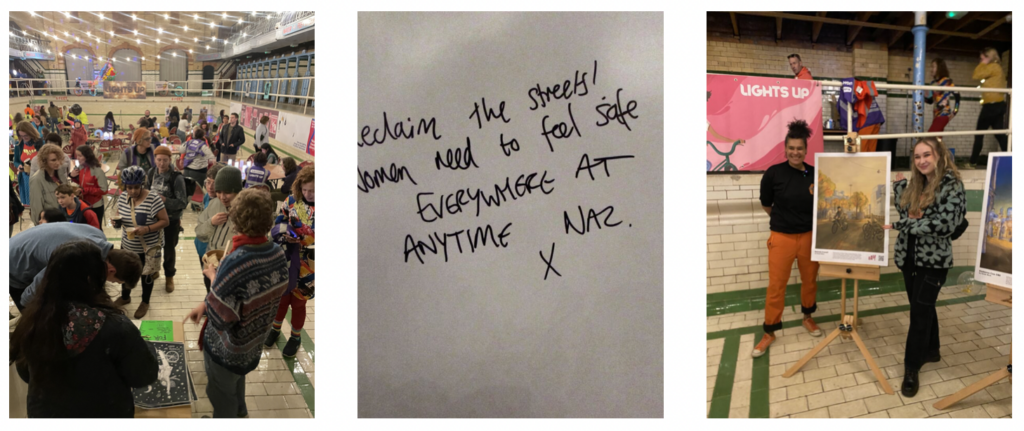 LIGHTS UP
eclaim the streets!
women need to feel safe
EVERYWHERE AT
ANYTIME NAZ.
X
LIGHTS UP